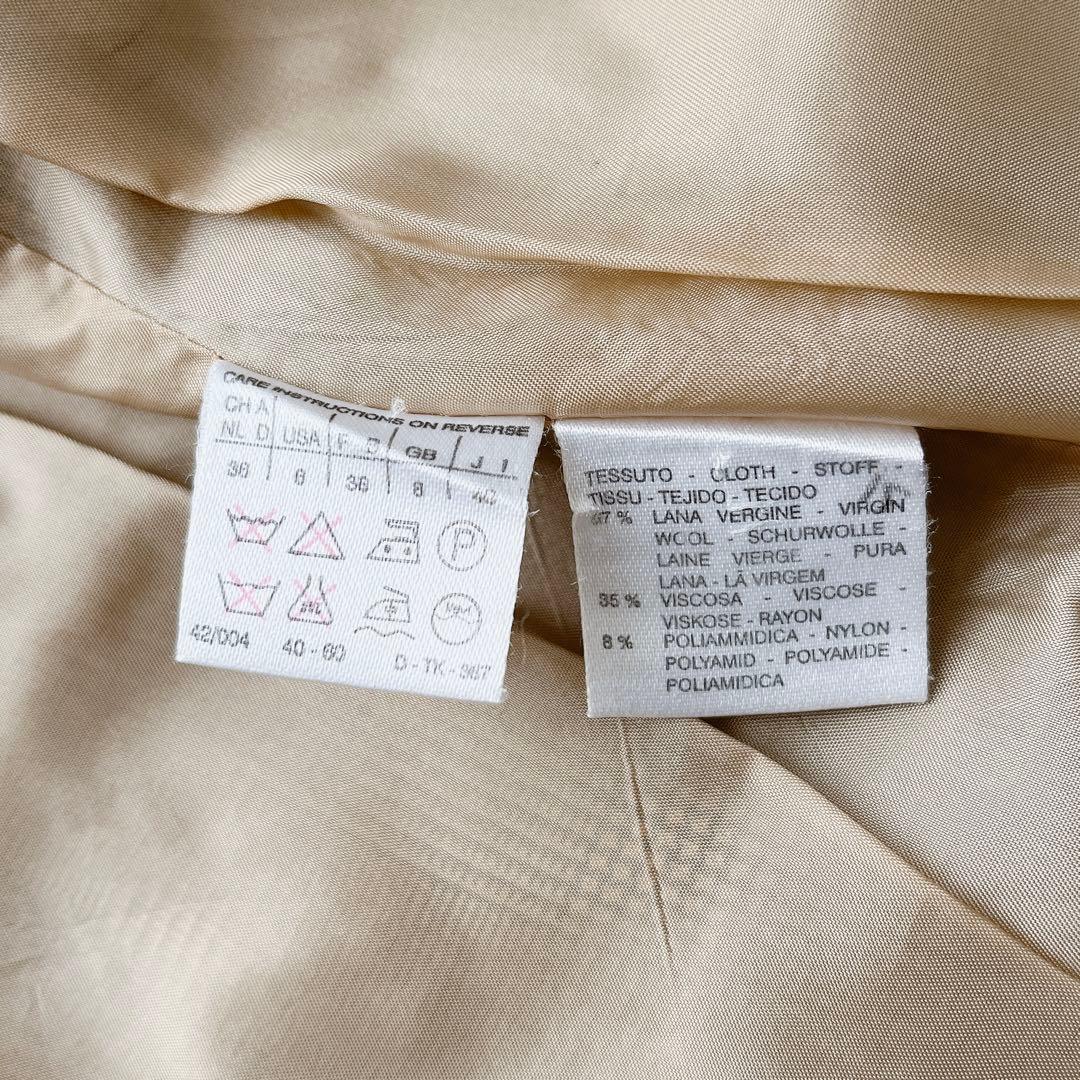 CARE INSTRUCTIONS ON REVERSE
CH A
NL D USA F D GB J I
36 6 38 8
P
42/004 40-60 D-TK-367
TESSUTO - CLOTH - STOFF -
TISSU - TEJIDO - TECIDO
57 % LANA VERGINE - VIRGIN
WOOL - SCHURWOLLE -
LAINE VIERGE - PURA
LANA - LÃ VIRGEM
35 % VISCOSA - VISCOSE -
VISKOSE - RAYON
8 % POLIAMMIDICA - NYLON -
POLYAMID - POLYAMIDE -
POLIAMIDICA